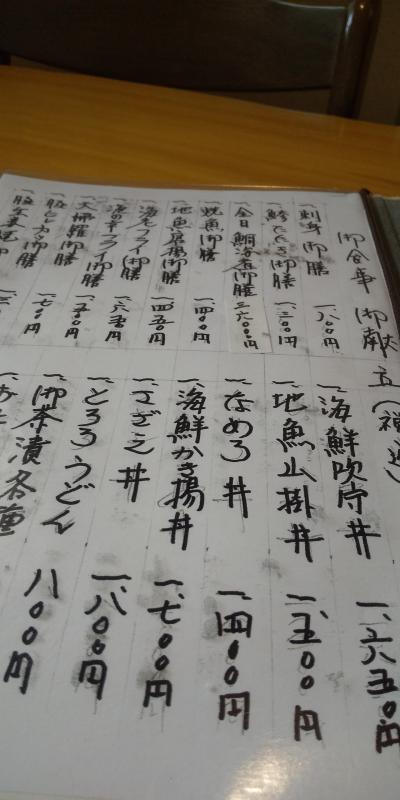 御食事 御献立(
一、刺身御膳 一、八〇〇円
一、鯵たたき御膳 一、三〇〇円
一、金目鯛煮魚御膳 二、六〇〇円
一、焼魚御膳 一、四〇〇円
一、地魚唐揚御膳 一、四五〇円
一、海老フライ御膳
一、海の幸フライ御膳 一、六五〇円
一、天婦羅御膳 一、五〇〇円
一、豚ヒレカツ御膳 一、七〇〇円
一、豚生姜
一、海鮮吹寄丼 一、六五〇円
一、地魚山掛丼 一、五〇〇円
一、なめろ丼 一、四〇〇円
一、海鮮かき揚丼 一、七〇〇円
一、さざえ丼
一、とろろうどん 一、八〇〇円
一、御茶漬各種 八〇〇円